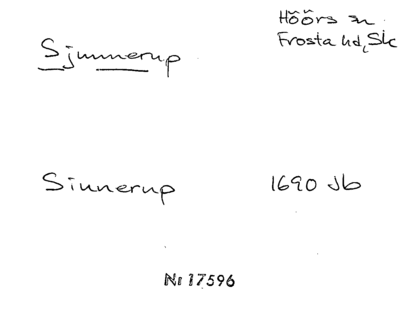 Sjunnerup
Höörs sn
Frosta hd, Sk
Sinnerup 1690 Jb
Nr 17596